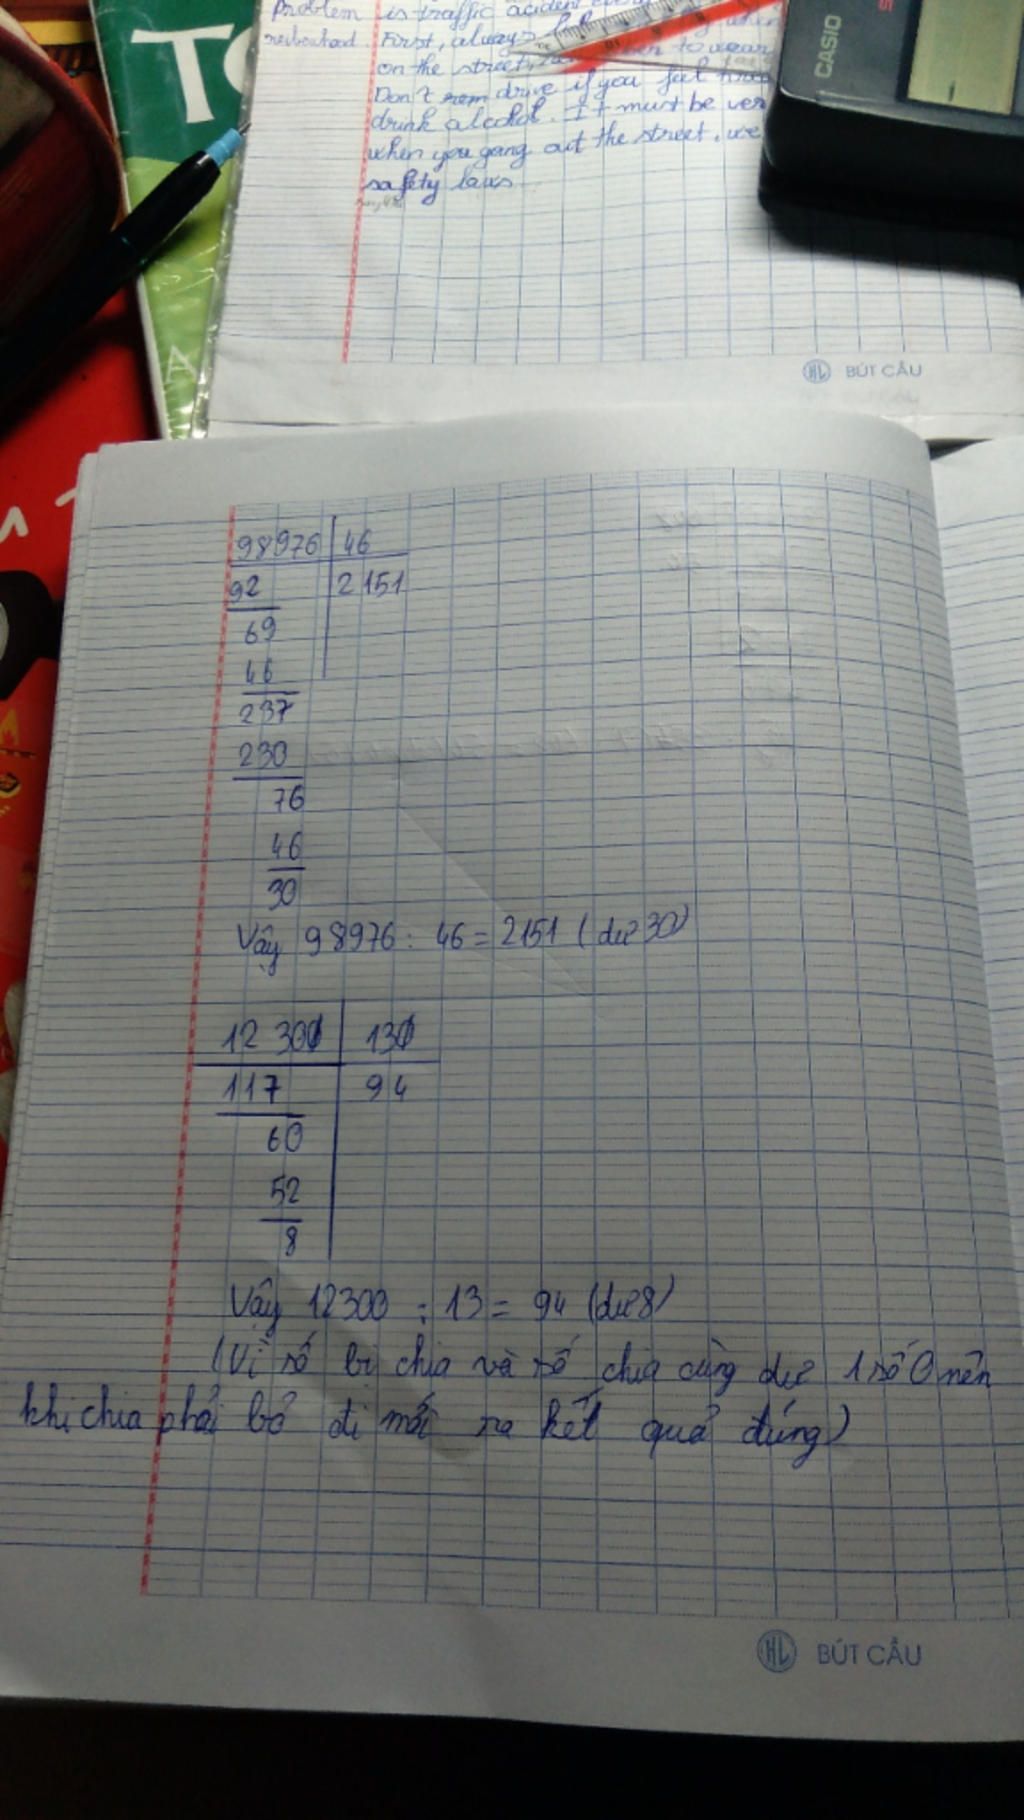 T
CASIO
Problem is traffic acident
First, always
on the street,
Don't rem drive if you feel
drink alcohol. It must be ver
when you gong out the street, we
safety laws
A
HL BÚT CẦU
98976 46
92 2151
69
46
237
230
76
46
30
Vậy 98976 : 46 = 2151 (dư 30)
12 300 130
117 94
60
52
8
Vậy 12300 : 13 = 94 (dư 8)
(Vì số bị chia và số chia cùng dư 1 số 0 nên
khi chia phải bỏ đi mới ra kết quả đúng)
HL BÚT CẦU